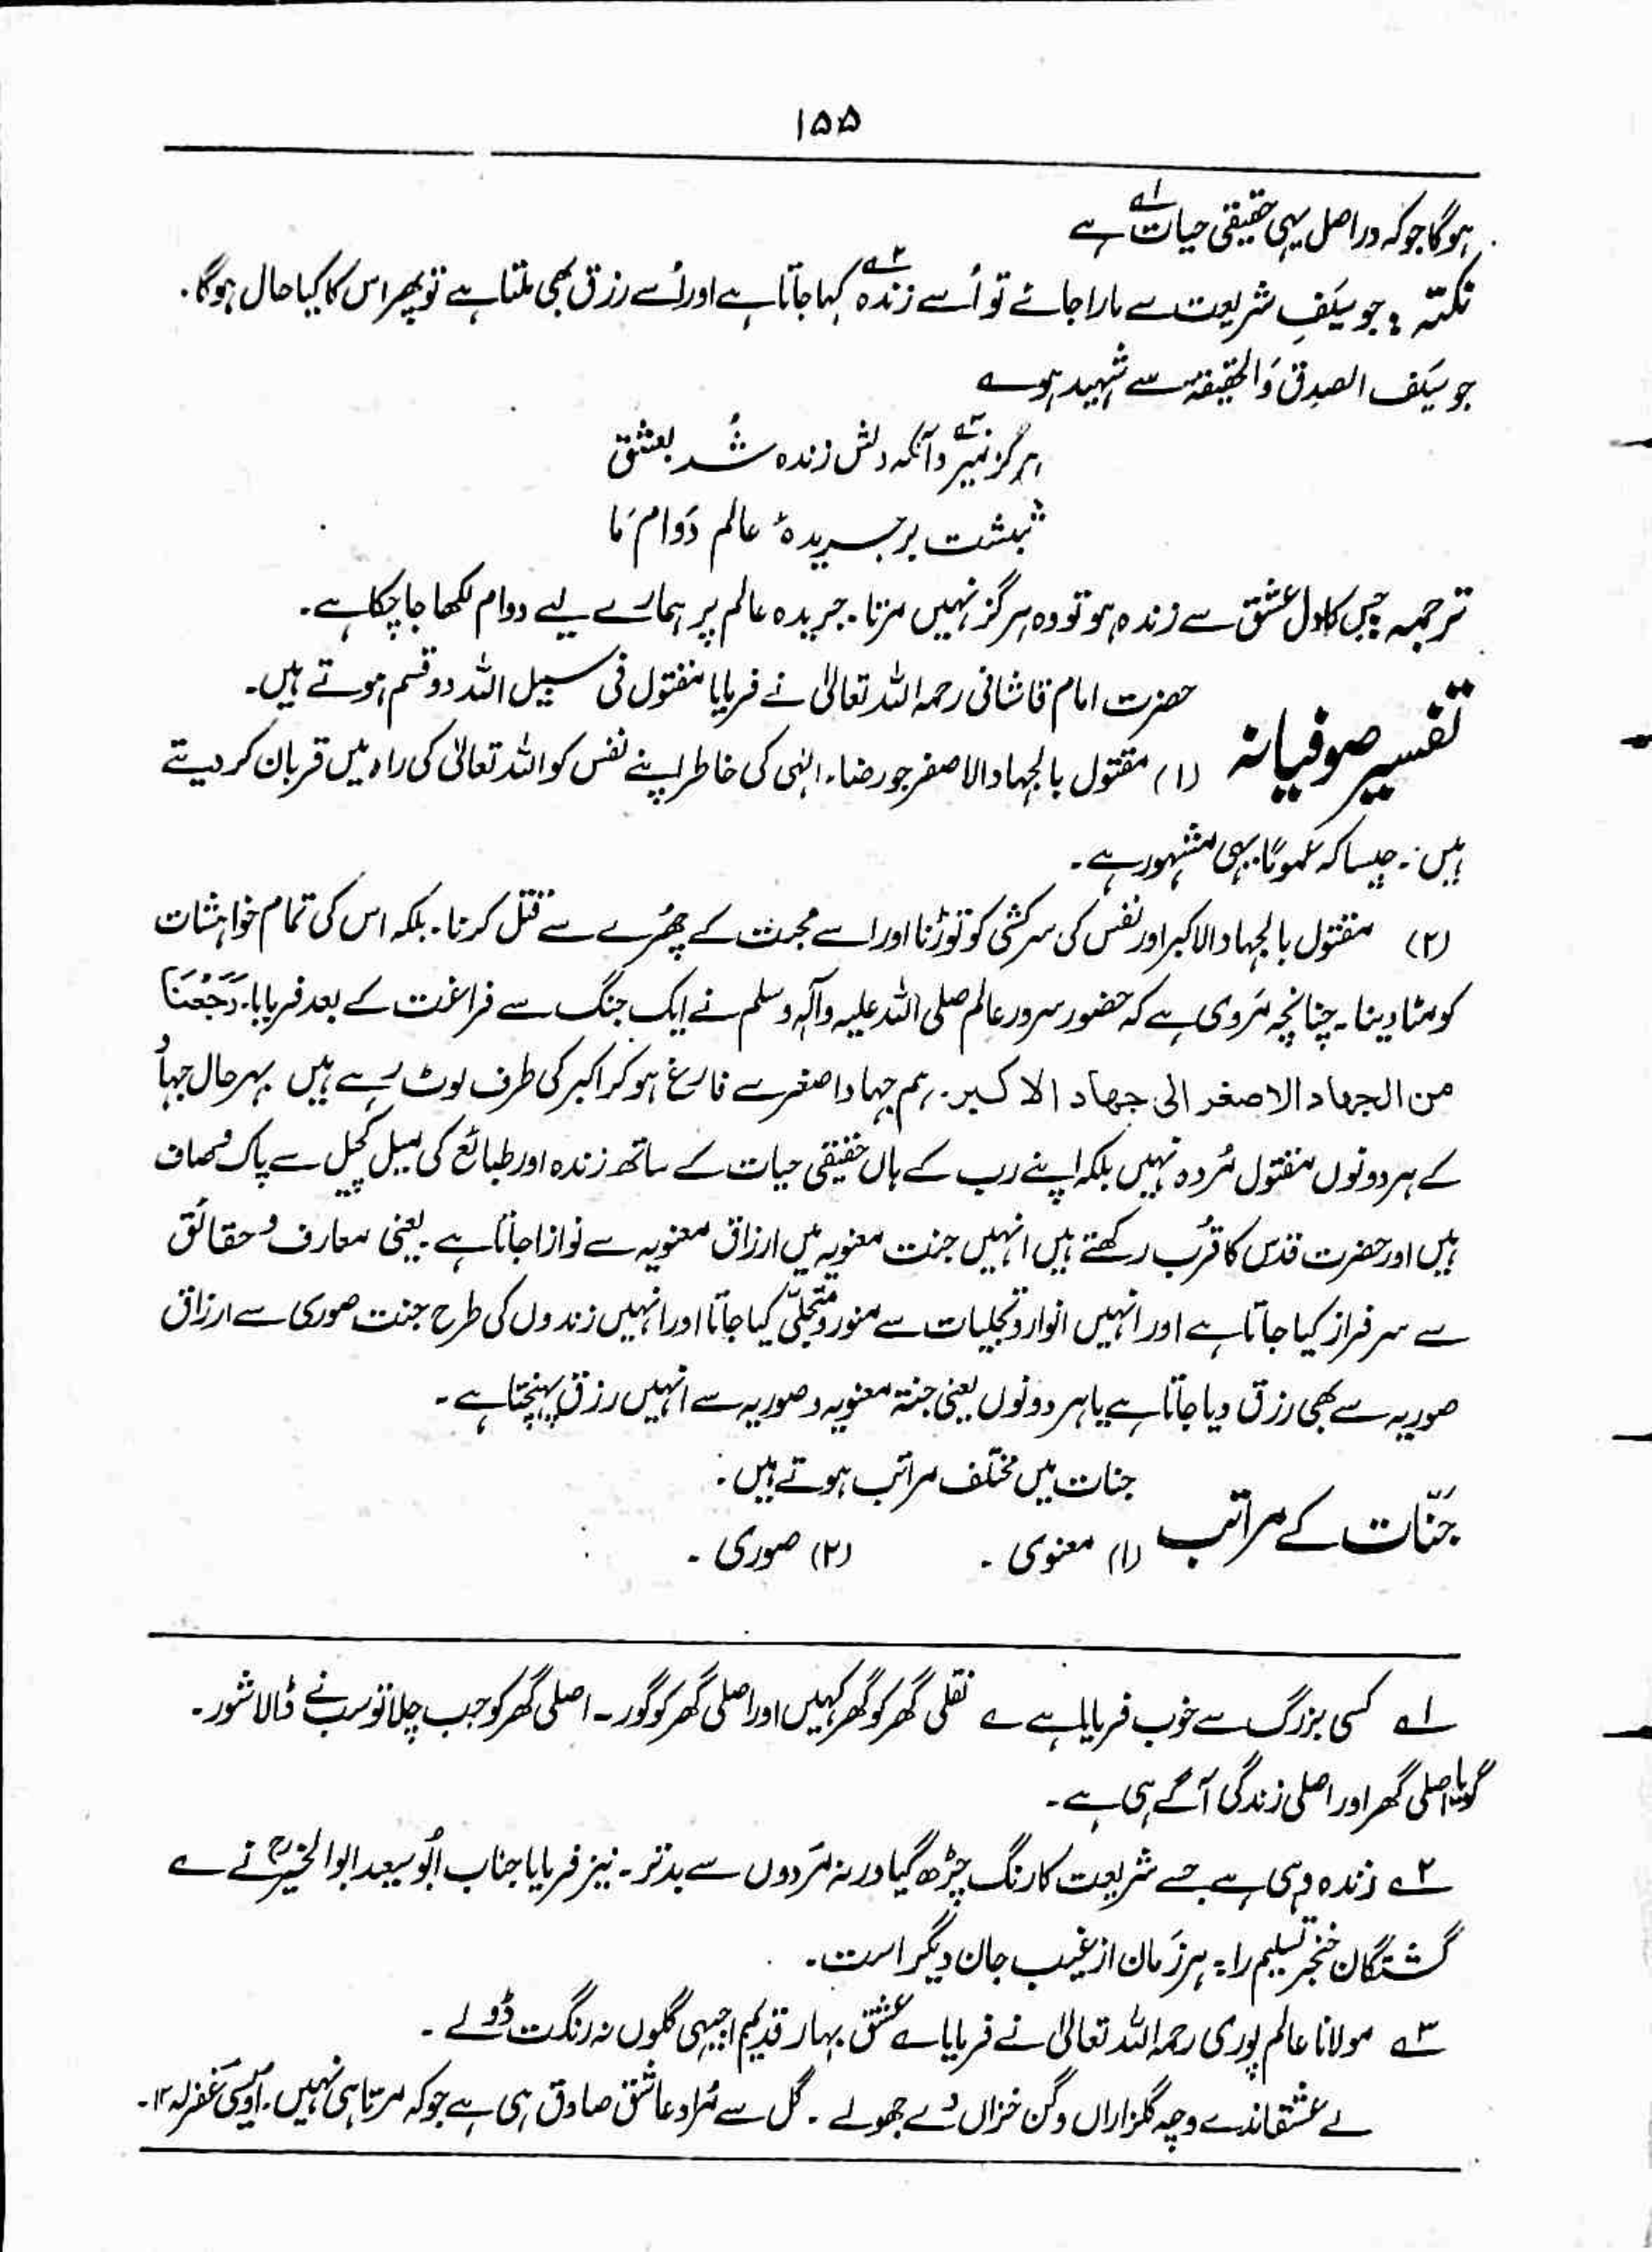 ۱۵۵
ہوگا جو کہ دراصل یہی حقیقی حیات ۱؎ ہے
نکتہ : جو سَیفِ شریعت سے مارا جائے تو اُسے زندہ ۲؎ کہا جاتا ہے اور اُسے رزق بھی ملتا ہے تو پھر اس کا کیا حال ہوگا۔
جو سَیف الصدق وَالحقیقۃ سے شہید ہو ؎
ہرگز نمیرد ۳؎ آنکہ دلش زندہ شُد بعشق
ثبشت بر جریدۂ عالم دَوام مَا
ترجمہ جس کا دل عشق سے زندہ ہو تو وہ ہرگز نہیں مرتا۔ جریدہ عالم پر ہمارے لیے دوام لکھا جا چکا ہے۔
تفسیر صوفیانہ
حضرت امام قاشانی رحمہ اللہ تعالیٰ نے فرمایا مقتول فی سبیل اللہ دو قسم ہوتے ہیں۔
(۱) مقتول بالجہاد الاصغر جو رضاء الٰہی کی خاطر اپنے نفس کو اللہ تعالیٰ کی راہ میں قربان کر دیتے
ہیں۔ جیسا کہ عموماً یہی مشہور ہے۔
(۲) مقتول بالجہاد الاکبر اور نفس کی سرکشی کو توڑنا اور اسے محبت کے چھُرے سے قتل کرنا۔ بلکہ اس کی تمام خواہشات
کو مٹا دینا۔ چنانچہ مَروی ہے کہ حضور سرور عالم صلی اللہ علیہ وآلہٖ وسلم نے ایک جنگ سے فراغت کے بعد فرمایا۔ رَجَعْنَا
من الجهاد الاصغر الی جهاد الاکبر۔ ہم جہاد اصغر سے فارغ ہو کر اکبر کی طرف لوٹ رہے ہیں بہرحال جہاد
کے ہر دونوں مقتول مُردہ نہیں بلکہ اپنے رب کے ہاں حقیقی حیات کے ساتھ زندہ اور طبائع کی میل کچیل سے پاک وصاف
ہیں اور حضرت قدس کا قُرب رکھتے ہیں انہیں جنت معنویہ میں ارزاق معنویہ سے نوازا جاتا ہے یعنی معارف و حقائق
سے سرفراز کیا جاتا ہے اور انہیں انوار و تجلیات سے منور و متجلّی کیا جاتا اور انہیں زندوں کی طرح جنت صوری سے ارزاق
صوریہ سے بھی رزق دیا جاتا ہے یا ہر دونوں یعنی جنۃ معنویہ و صوریہ سے انہیں رزق پہنچتا ہے۔
جنّات کے مراتب
جنات میں مختلف مراتب ہوتے ہیں :
(۱) معنوی۔ (۲) صوری۔
۱؎ کسی بزرگ سے خوب فرمایا ہے ؎ نقلی گھر کو گھر کہیں اور اصلی گھر کو گور۔ اصلی گھر کو جب چلا تو سب نے ڈالا شور۔
گویا اصلی گھر اور اصلی زندگی آگے ہی ہے۔
۲؎ زندہ وہی ہے جسے شریعت کا رنگ چڑھ گیا ورنہ مَردوں سے بدتر۔ نیز فرمایا جناب ابُو سعید ابو الخیرؒ نے ؎
گشتگان خنجر تسلیم را : ہر زَمان از غیب جان دیگر است۔
۳؎ مولانا عالم پوری رحمہ اللہ تعالیٰ نے فرمایا ؎ عشق بہار قدیم اجیہی گلوں نہ رنگت ڈولے۔
لے عشقاندے وچہ گلزاراں وگن خزاں دے جھولے۔ گل سے مُراد عاشق صادق ہی ہے جو کہ مرتا ہی نہیں۔ اُویسی غفرلہٗ ۱۲۔